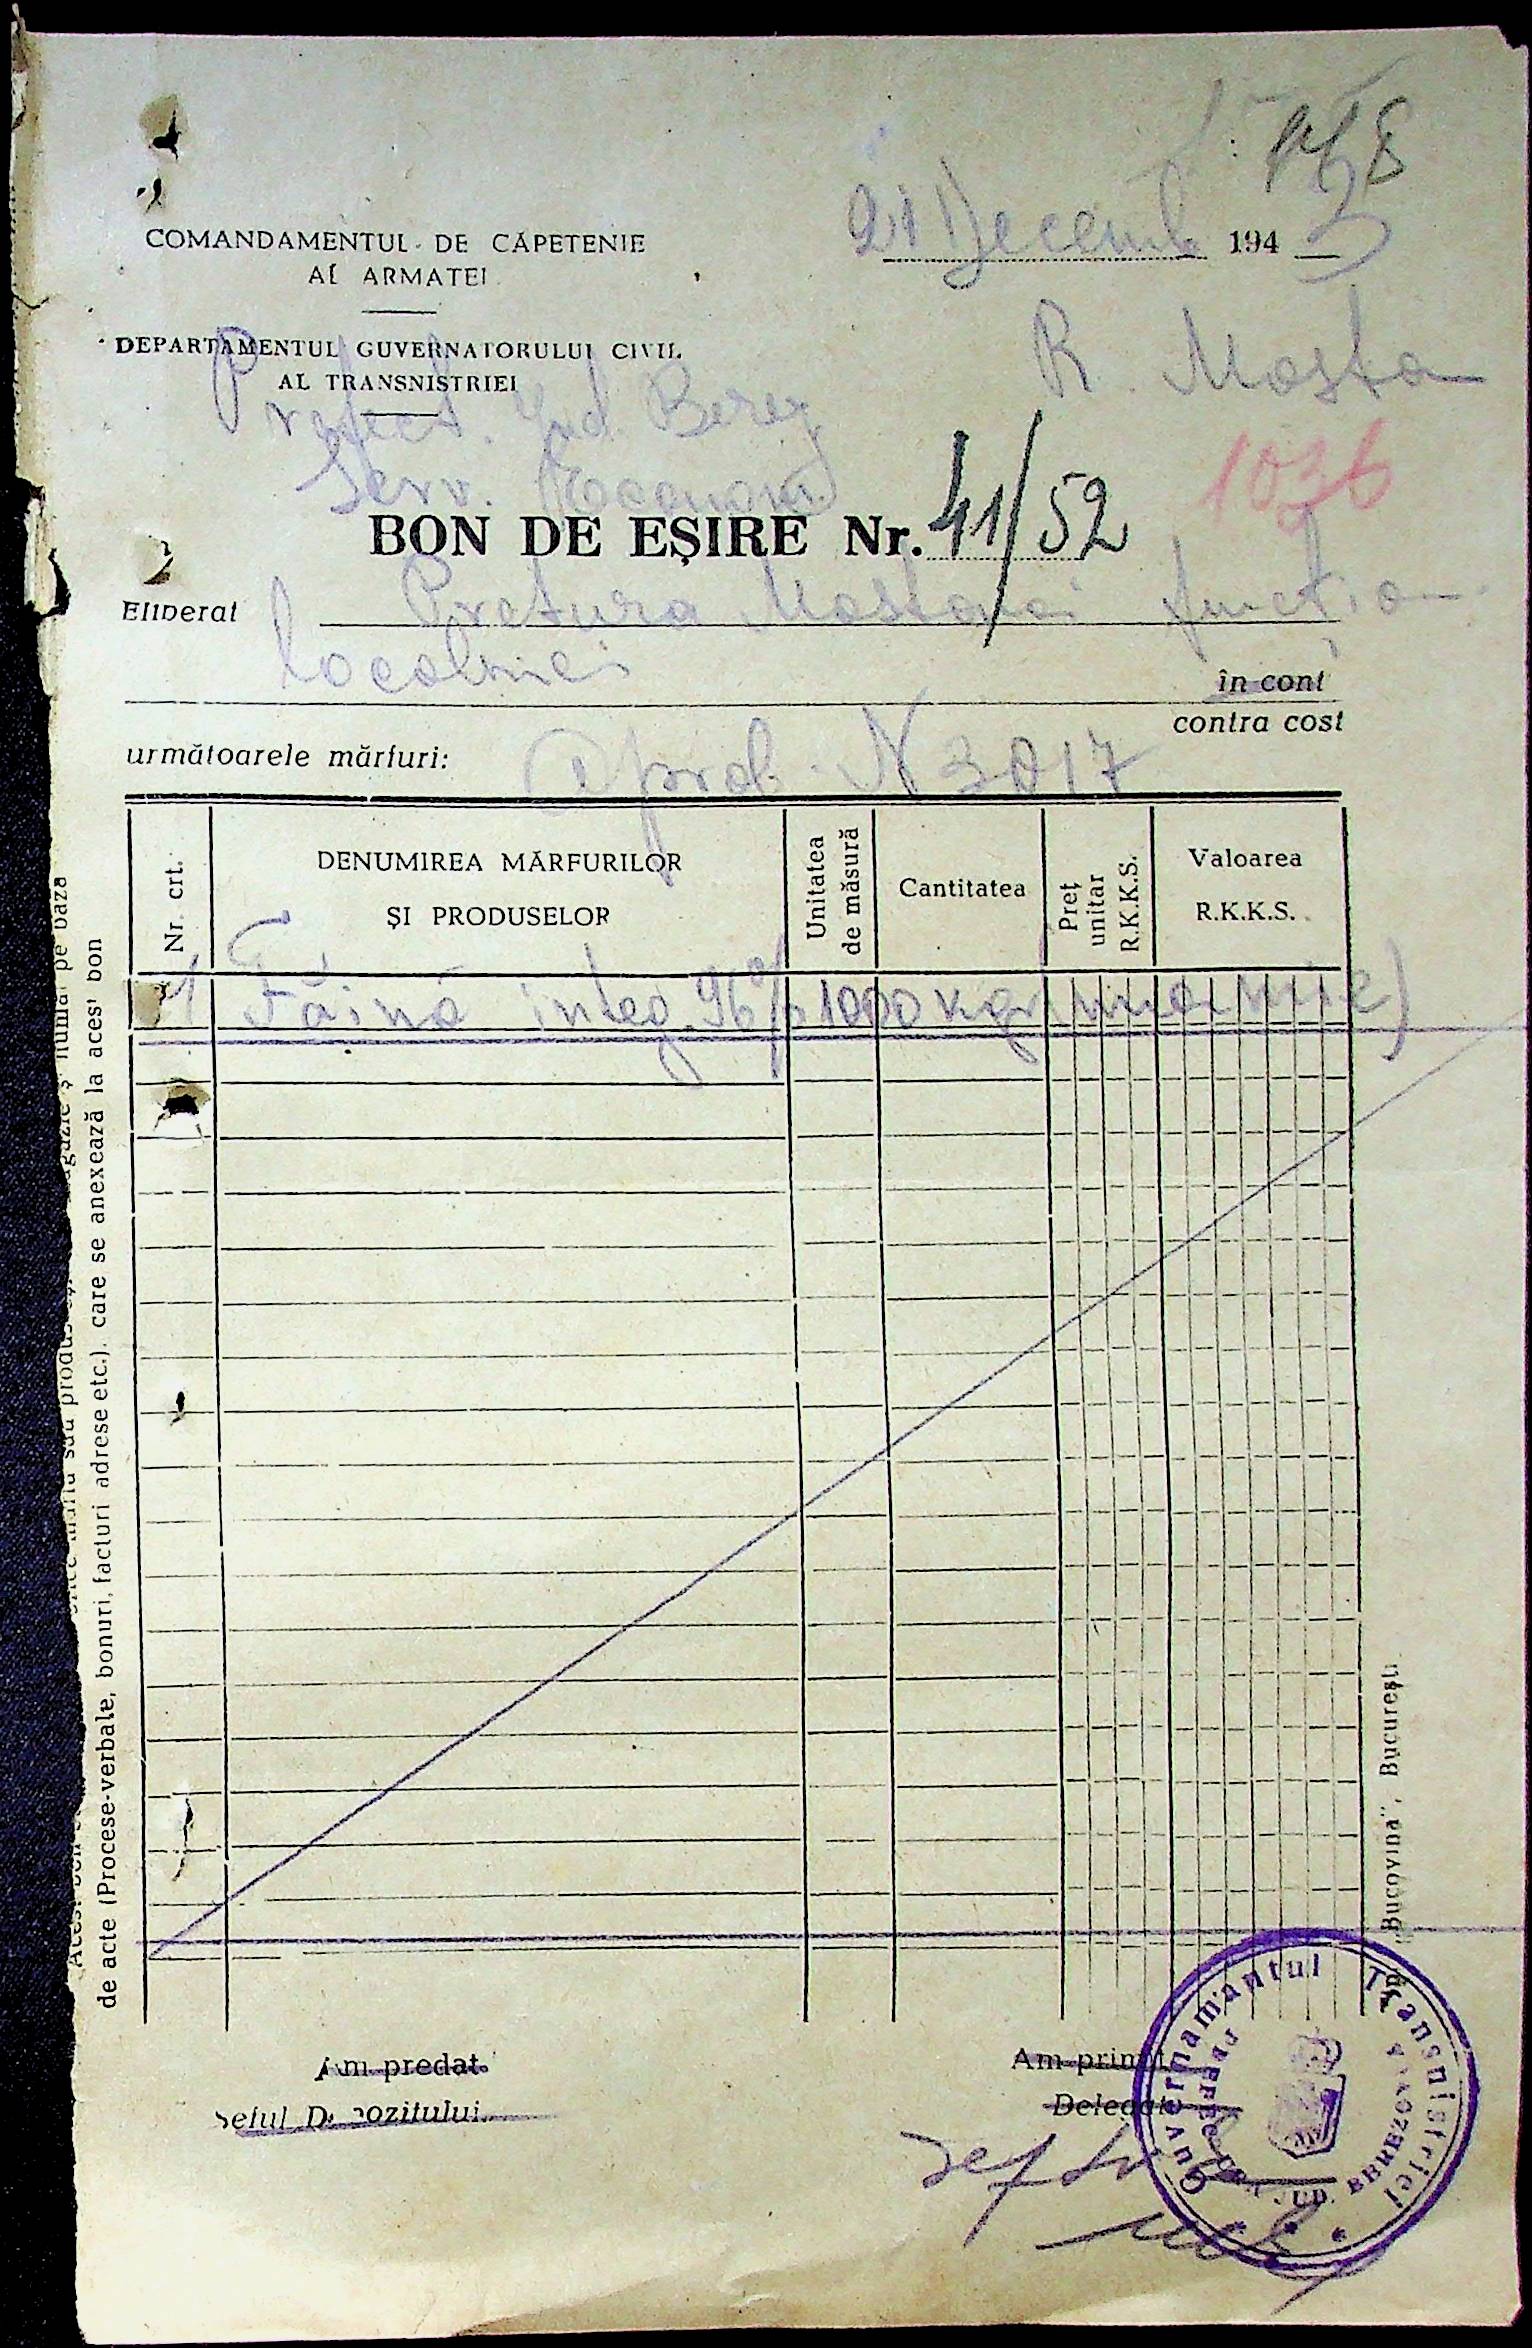 168
21 Decemb 1943
COMANDAMENTUL DE CĂPETENIE
AL ARMATEI
DEPARTAMENTUL GUVERNATORULUI CIVIL
AL TRANSNISTRIEI
R. Mosto
Prefect. Jud. Berez
Serv. Econom.
1036
BON DE EȘIRE Nr. 41/52
Eliberat Pretura Mostovoi
în cont
contra cost
următoarele mărfuri: Aprob. N 3017
Nr. crt.
DENUMIREA MĂRFURILOR
ȘI PRODUSELOR
Unitatea
de măsură
Cantitatea
Preț
unitar
R.K.K.S.
Valoarea
R.K.K.S.
1 Făină integ. 96% 1000 kgr. una mie)
numai pe baza
de acte (Procese-verbale, bonuri, facturi adrese etc.). care se anexează la acest bon
"Bucovina", București
Am predat
Șeful Depozitului
Am primit
Delegat
Guvernamantul Transnistriei
PREFECTURA JUD. BEREZOVCA